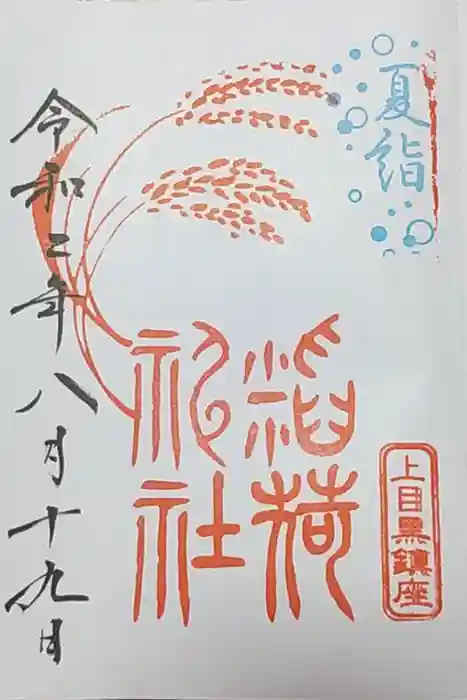 夏詣
上目黒鎮座
稲荷
神社
令和二年八月十九日